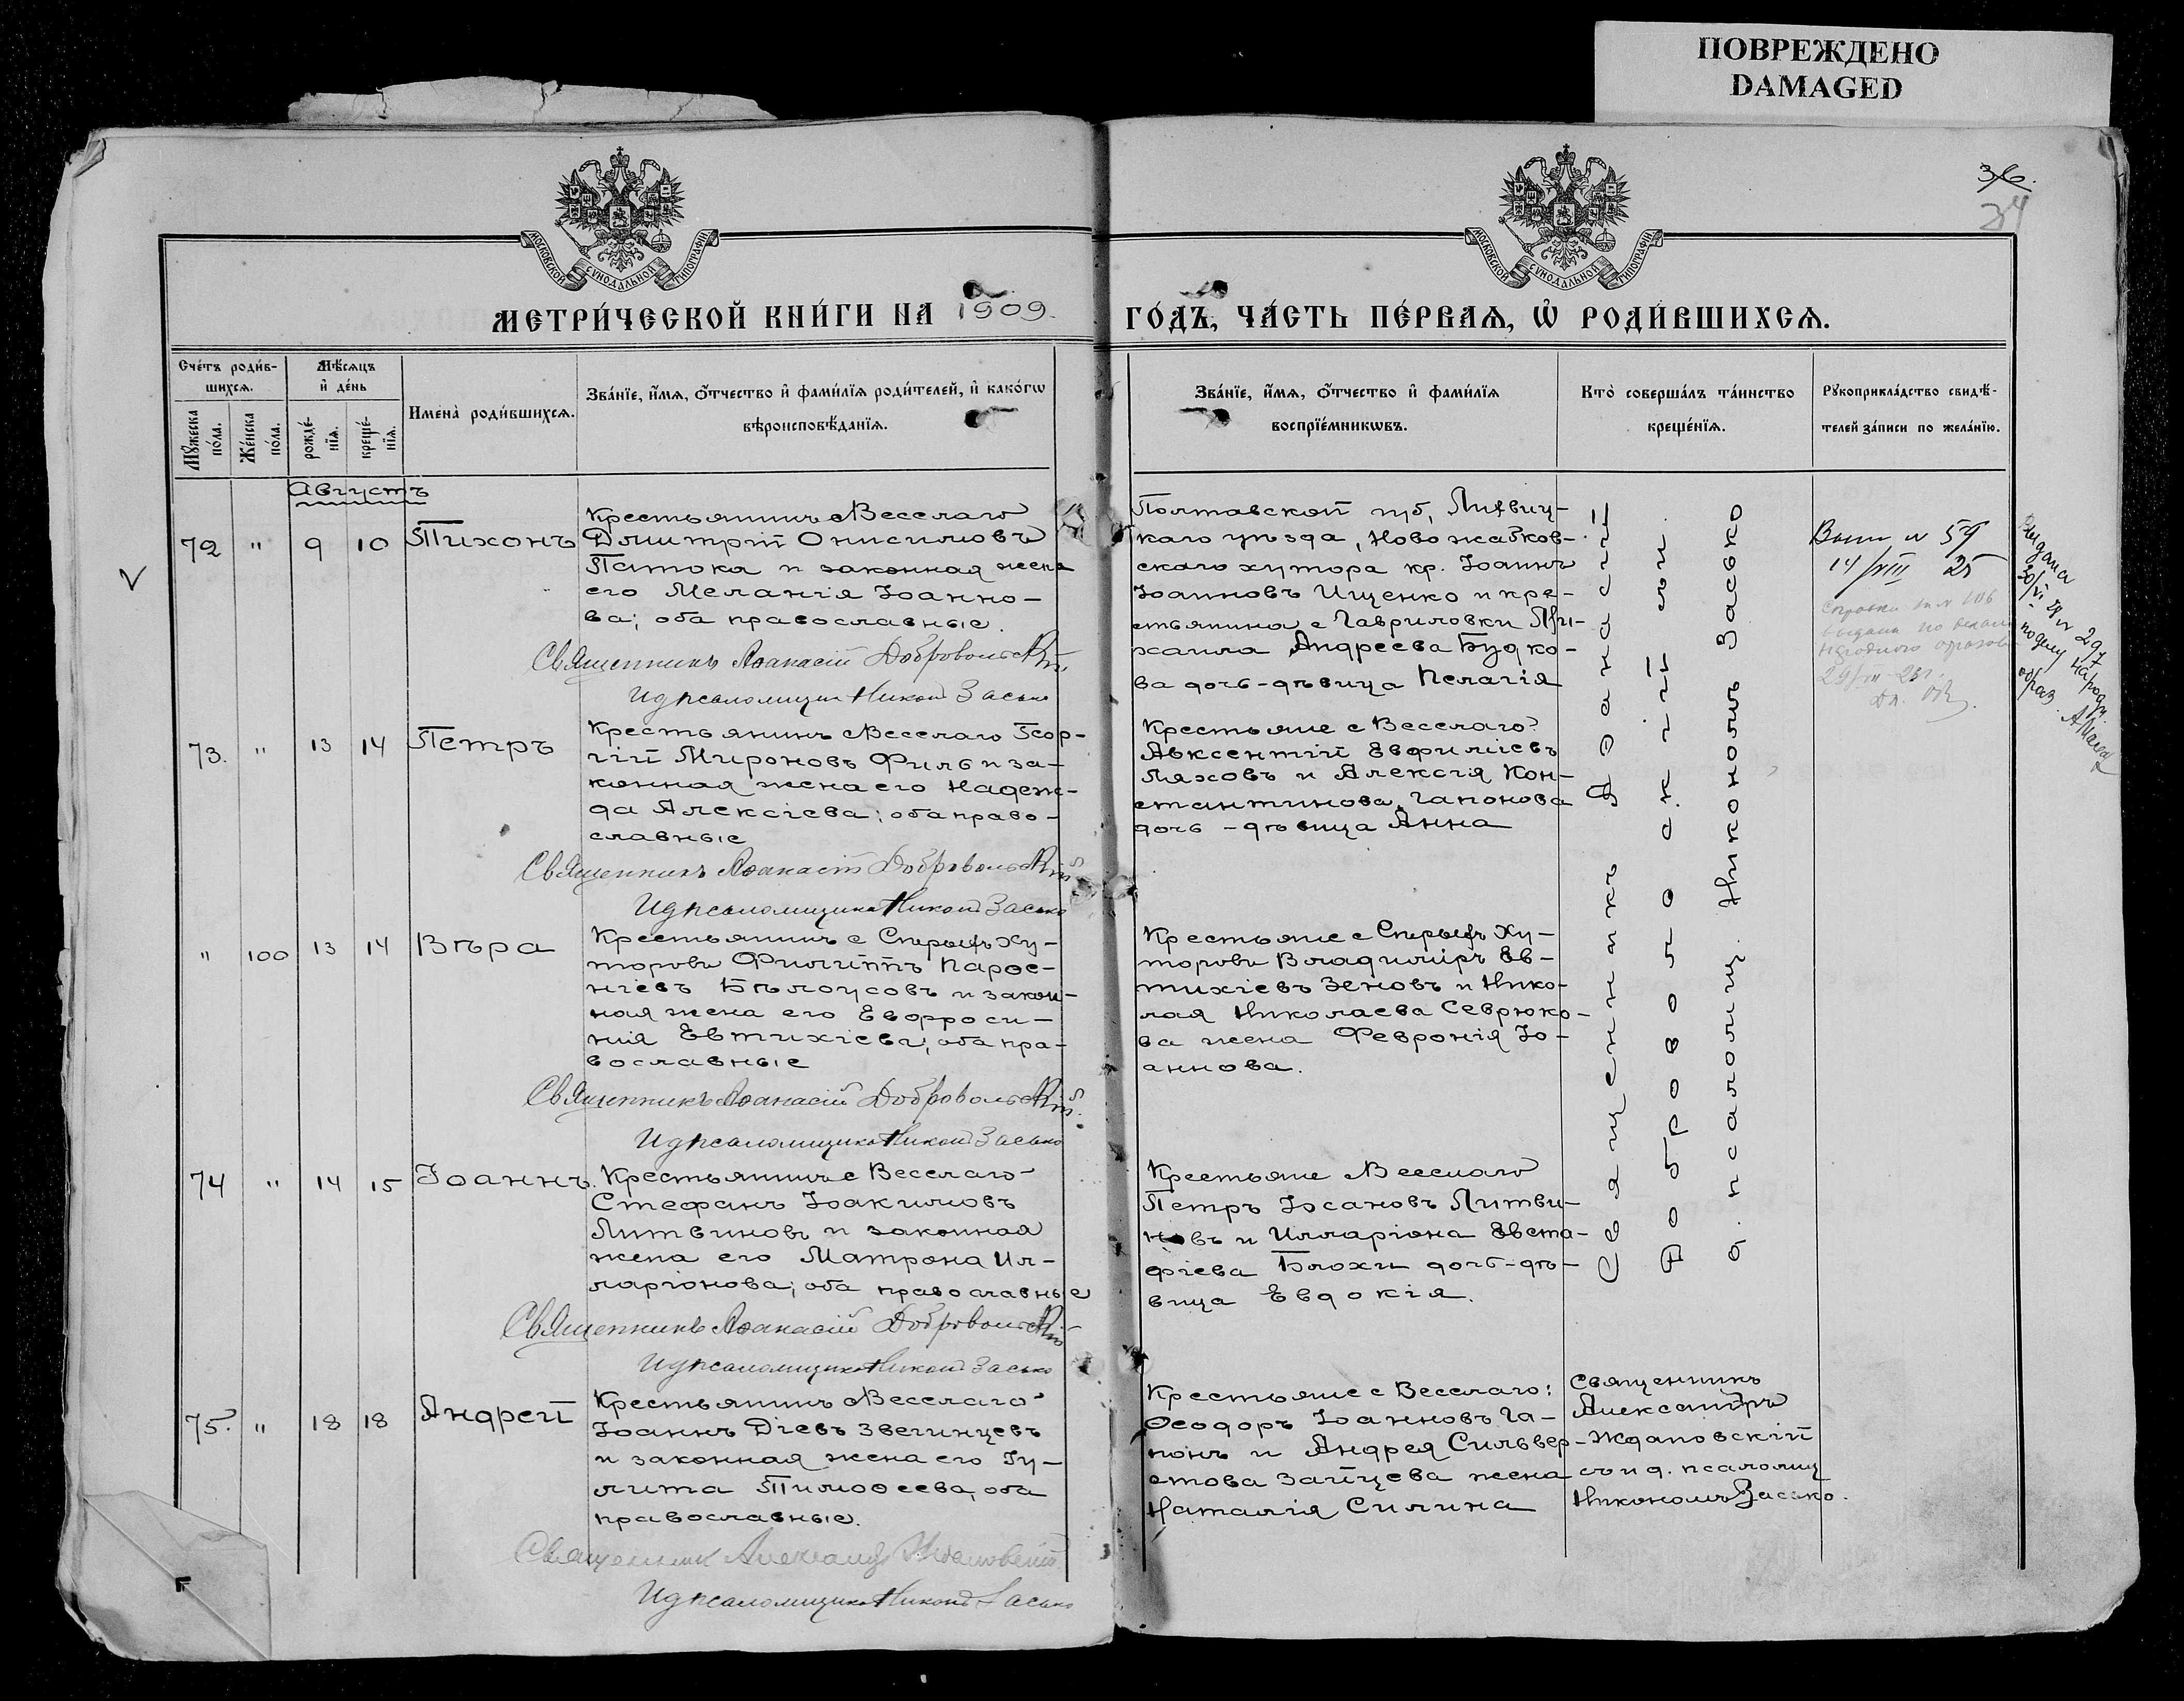 ПОВРЕЖДЕНО
DAMAGED
36.
МОСКОВСКОЙ СУНОДАЛЬНОЙ ТИПОГРАФІИ
МОСКОВСКОЙ СУНОДАЛЬНОЙ ТИПОГРАФІИ
МЕТРИ́ЧЕСКОЙ КНИ́ГИ НА 1909.
ГО́ДЪ, ЧА́СТЬ ПЕ́РВАѦ, Ѡ҆ РОДИ́ВШИХСѦ.
Сче́тъ роди́в-
шихсѧ.
Мꙋ́жеска по́ла.
Же́нска по́ла.
Мѣ́сѧцъ
и҆ де́нь
рожде́-
нїѧ.
креще́-
нїѧ.
Имена̀ роди́вшихсѧ.
Зва́нїе, и҆́мѧ, ѻ҆́тчество и҆ фами́лїѧ роди́телей, и҆ како́гѡ
вѣроисповѣ́данїѧ.
Зва́нїе, и҆́мѧ, ѻ҆́тчество и҆ фами́лїѧ
воспрїе́мникѡвъ.
Кто̀ соверша́лъ та́инство
креще́нїѧ.
Рꙋкоприкла́дство свидѣ́-
телей за́писи по жела́нїю.
Августъ
72 " 9 10 Тихонъ
Крестьянинъ с Веселаго
Димитрій Онисимовъ
Патока и законная жена
его Меланія Іоанно-
ва; оба православные.
Священникъ Аѳанасій Добровольскій
И д псаломщика Никонъ Засько
Полтавской губ,
каго уѣзда, Ново
скаго хутора кр. Іоаннъ
Іоанновъ Ищенко и кре-
стьянина с Гавриловки Ми-
хаила Андреева Будко-
ва дочь-дѣвица Пелагія
Священникъ Аѳанасій
Добровольскій
и д. псаломщ. Никономъ Засько
Вып № 59
14/VIII 25
Выдана
народн.
образ.
73. " 13 14 Петръ
Крестьянинъ с Веселаго Геор-
гій Мироновъ Филь и за-
конная жена его Надеж-
да Алексіева; оба право-
славные
Священникъ Аѳанасій Добровольскій
И д псаломщика Никонъ Засько
Крестьяне с Веселаго:
Авксентій Евфиміевъ
Ляховъ и Алексія Кон-
стантинова Гапонова
дочь-дѣвица Анна
" 100 13 14 Вѣра
Крестьянинъ с Спрыцъ Ху-
торовъ Филиппъ Парѳе-
ніевъ Бѣлоусовъ и закон-
ная жена его Евфроси-
нія Евтихіева; оба пра-
вославные
Священникъ Аѳанасій Добровольскій
И д псаломщика Никонъ Засько
Крестьяне с Спрыцъ Ху-
торовъ Владиміръ Ев-
тихіевъ Зеновъ и Нико-
лая Николаева Севрюко-
ва жена Февронія Іо-
аннова.
74 " 14 15 Іоаннъ.
Крестьянинъ с Веселаго
Стефанъ Іоакимовъ
Литвиновъ и законная
жена его Матрона Ил-
ларіонова; оба православные
Священникъ Аѳанасій Добровольскій
И д псаломщика Никонъ Засько
Крестьяне Веселаго
Петръ Литви-
новъ и Илларіона Евста-
фіева Блохи дочь-дѣ-
вица Евдокія.
75. " 18 18 Андрей
Крестьянинъ с Веселаго
Іоаннъ Діевъ Звегинцевъ
и законная жена его Іу-
лита Тимоѳеева, оба
православные.
Священник Александр Ждановскій
И д псаломщика Никонъ Засько
Крестьяне с Веселаго:
Ѳеодоръ Іоанновъ Га-
понъ и Андрея Сильвер-
стова Зайцева жена
Наталія Силина
Священникъ
Александръ
Ждановскій
съ и д. псаломщ
Никономъ Засько.